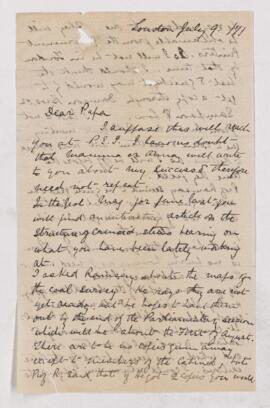 London July 9th /71
Dear Papa
I suppose this will reach
you at P.E.I. I have no doubt
that mamma or Anna will write
to you about my success therefore
need not repeat.
In the Geol. Mag. for June last you
will find an interesting article on the
bearing on
what you have been lately working
at.
I asked Ramsay about the maps for
the coal survey. He says they are not
yet ready but he hopes to have them
out by the end of the Parliamentary session
which will be about the First of August.
There are to be no copies given away
except to members of the Cabinet, but
said that if he got 2 copies you would